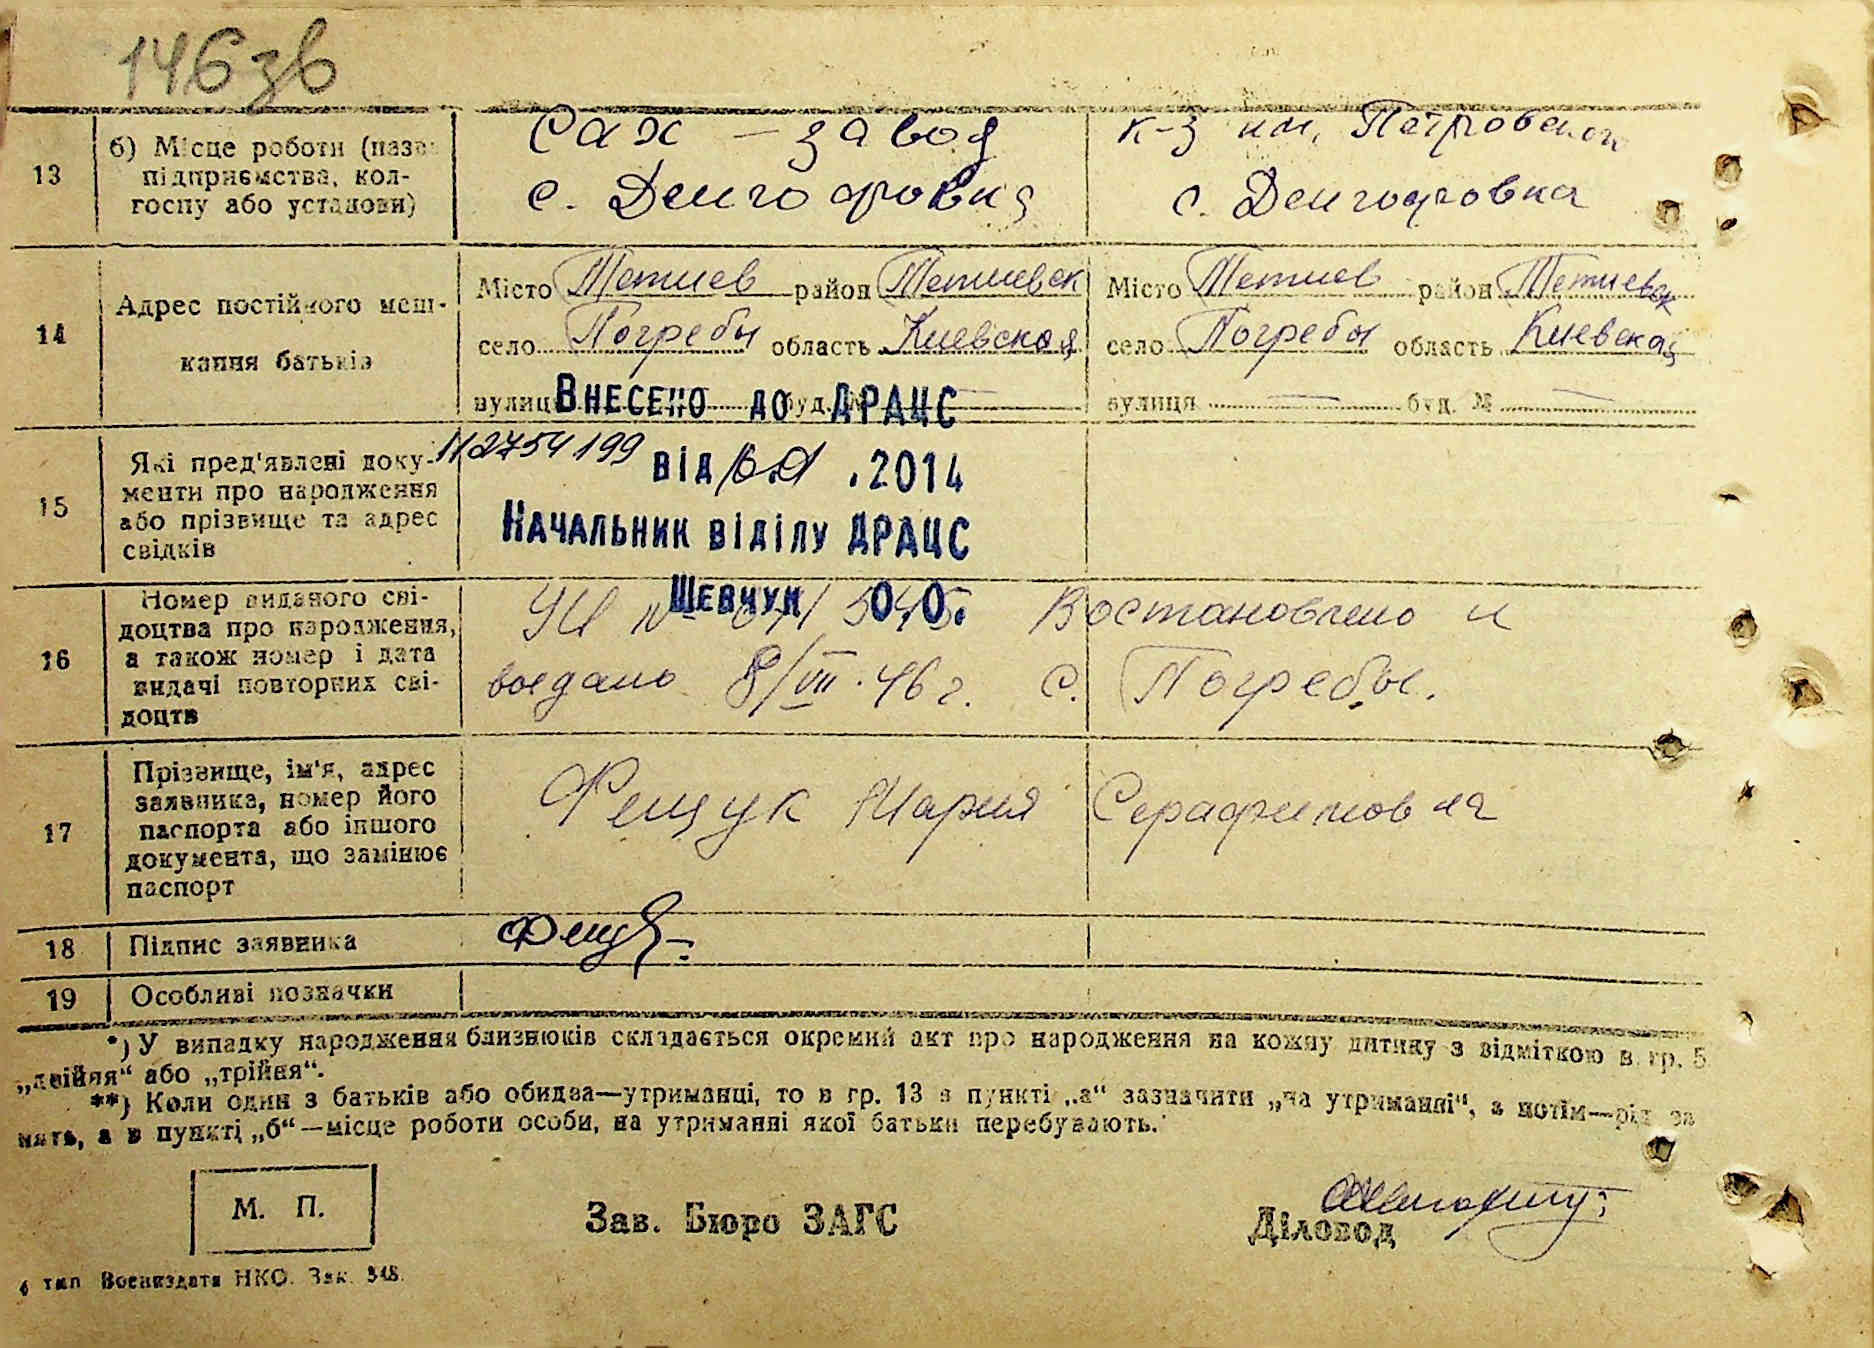 146зв
13
б) Місце роботи (назва
підприємства, кол-
госпу або установи)
Сах - завод
с. Денгофовка
к-з им. Петровского
с. Денгофовка
14
Адрес постійного меш-
кання батьків
Місто Тетиев район Тетиевск
село Погребы область Киевская
вулиця буд. №
Місто Тетиев район Тетиевск
село Погребы область Киевская
вулиця — буд. № —
Внесено до ДРАЦС
15
Які пред'явлені доку-
менти про народження
або прізвище та адрес
свідків
2754199
від .2014
Начальник відділу ДРАЦС
Шевчук О.О.
16
Номер виданого сві-
доцтва про народження,
а також номер і дата
видачі повторних сві-
доцтв
УЦ № Востановлено и
выдано 8/VII.46 г. с. Погребы.
17
Прізвище, ім'я, адрес
заявника, номер його
паспорта або іншого
документа, що замінює
паспорт
Фещук Мария Серафимовна
18
Підпис заявника
Фещ
19
Особливі позначки
*) У випадку народження близнюків складається окремий акт про народження на кожну дитину з відміткою в гр. 5
„двійня“ або „трійня“.
**) Коли один з батьків або обидва—утриманці, то в гр. 13 в пункті „а“ зазначити „на утриманні“, а потім—рід за
нять, а в пункті „б“—місце роботи особи, на утриманні якої батьки перебувають.
М. П.
Зав. Бюро ЗАГС
Діловод
6 тип Воениздата НКО. Зак. 348.